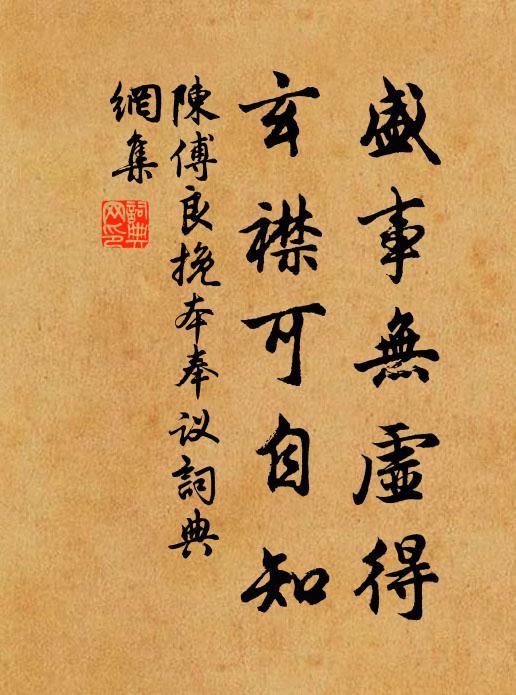 盛事無虛得
玄襟可自知
陳傅良挽本奉议詞典
網集
詞典
网印